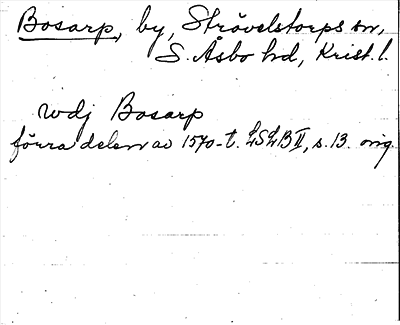 Bosarp, by, Strövelstorps sn,
S. Åsbo hd, Krist. l.
wdj Bosarp
förra delen av 1570-t. LSLB II, s. 13. orig.